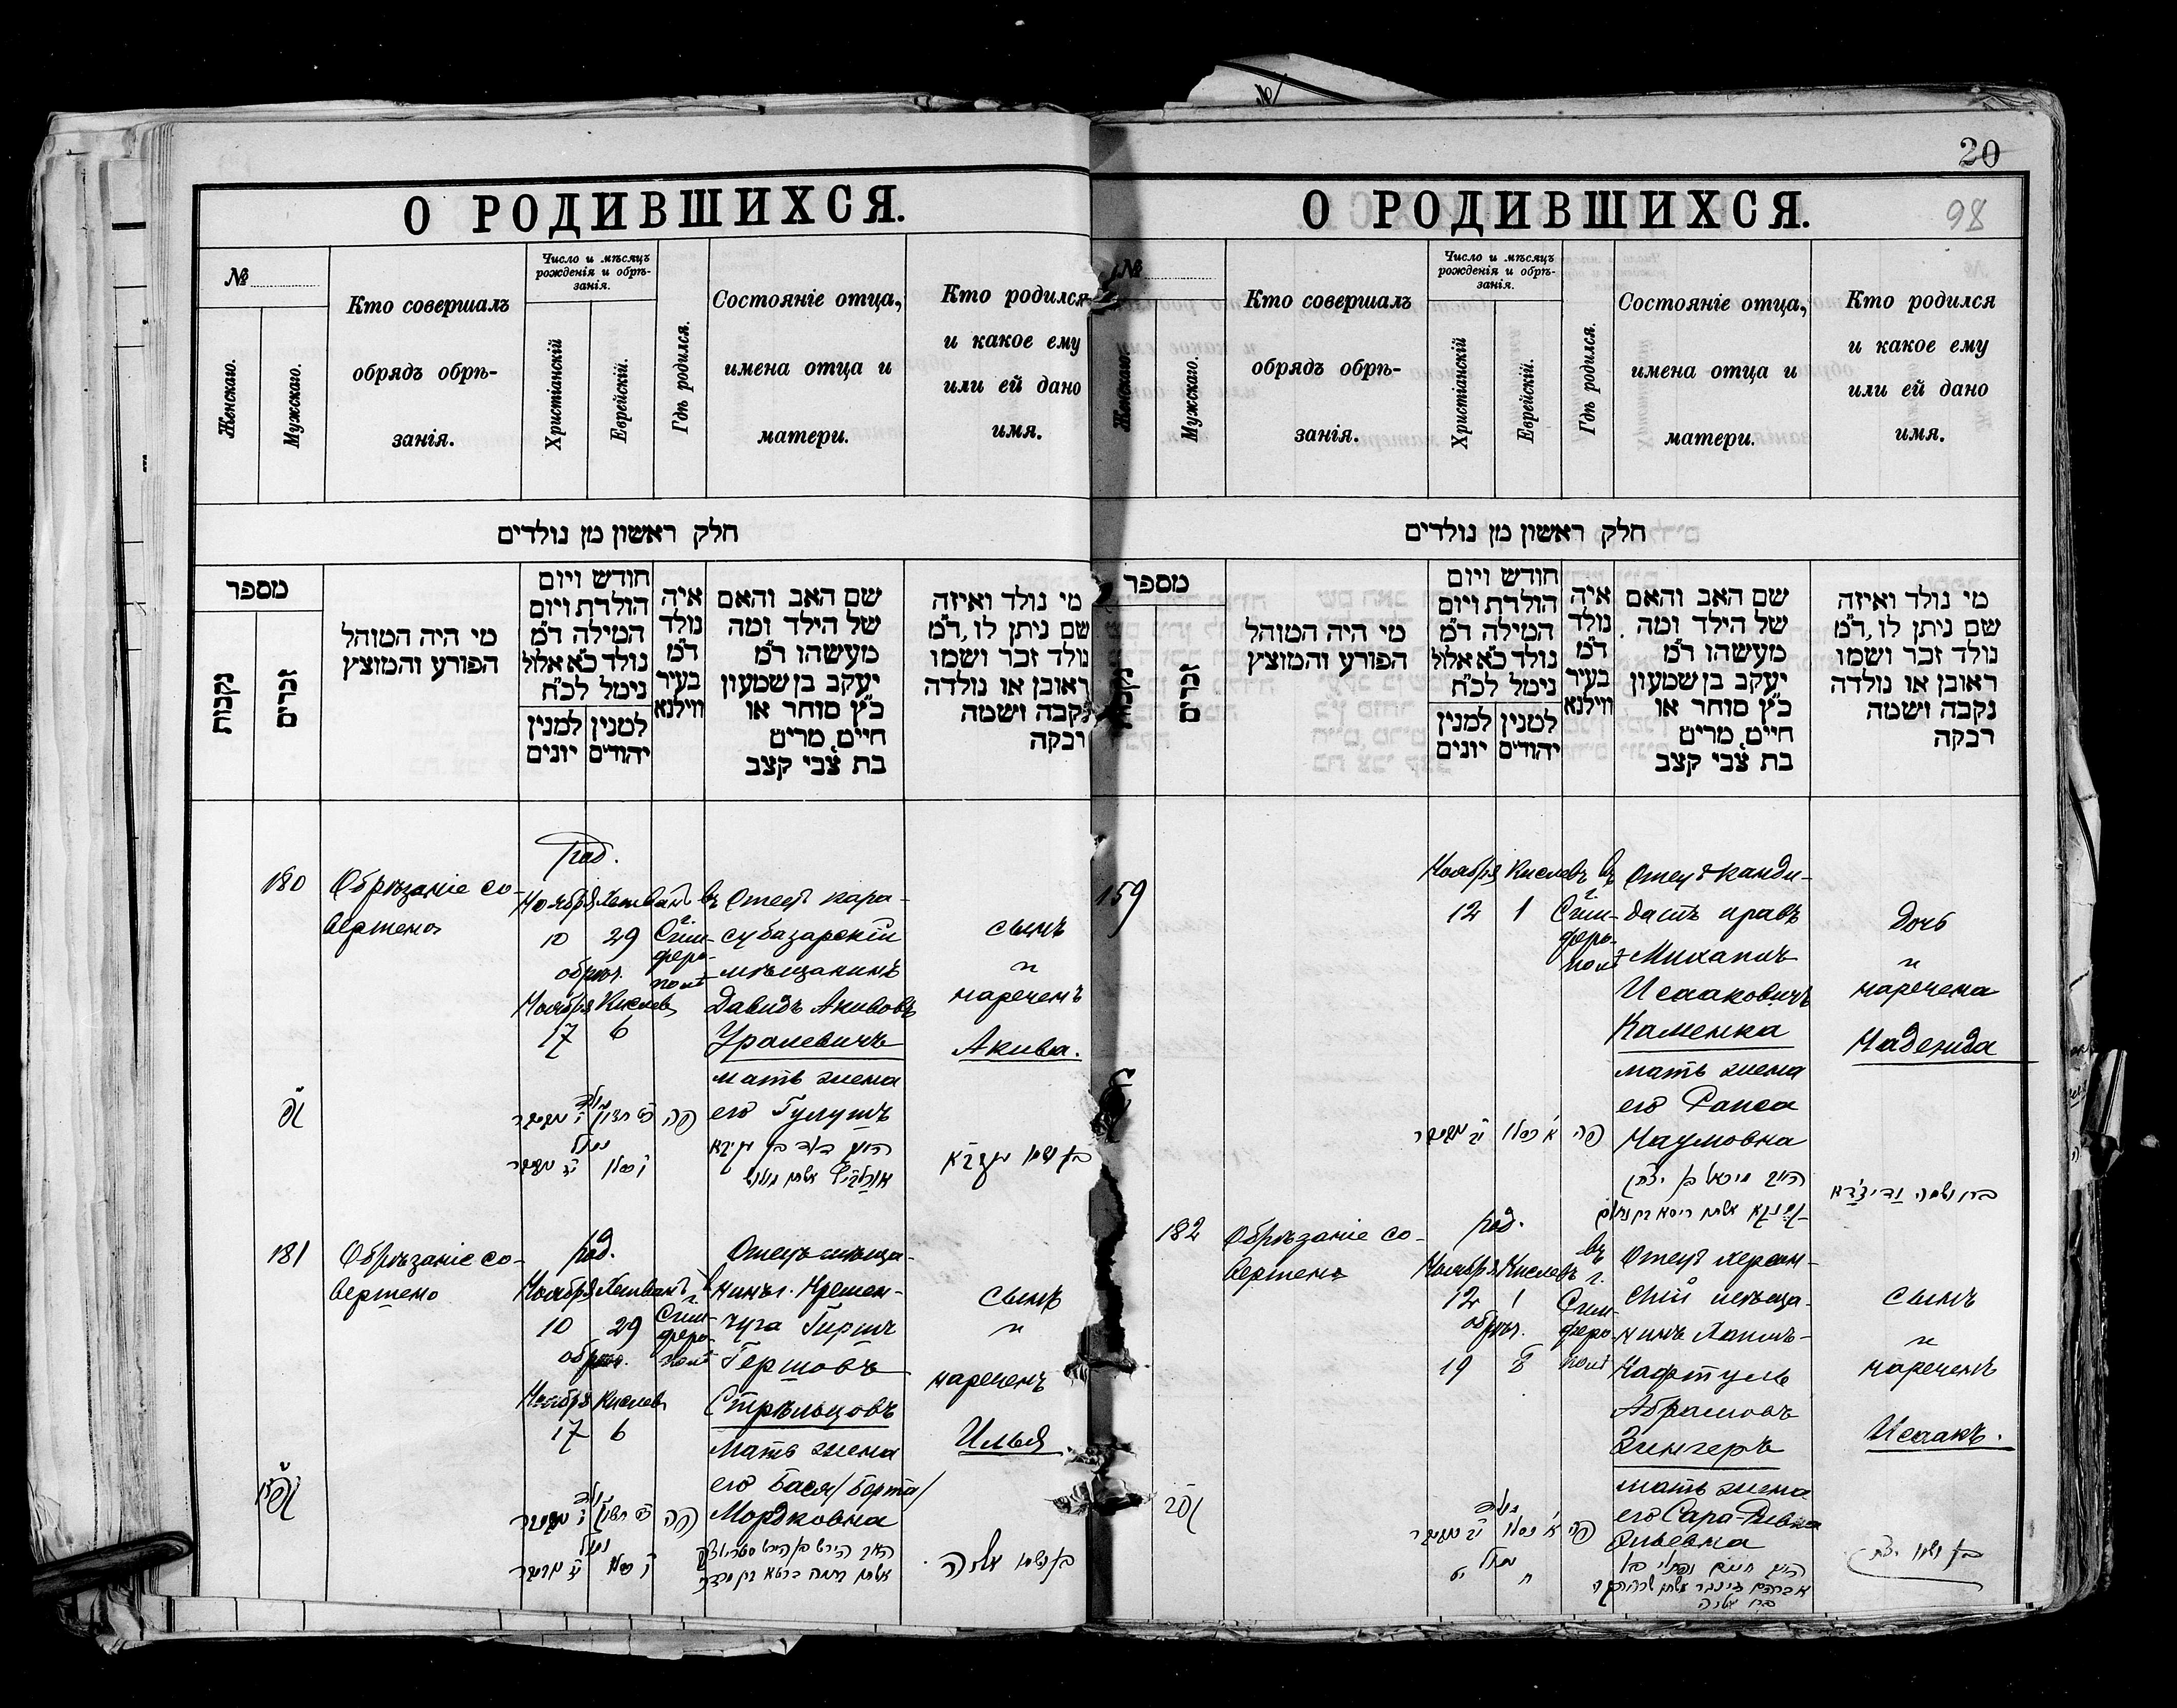 20
98
О РОДИВШИХСЯ.
№
Женскаго.
Мужскаго.
Кто совершалъ
обрядъ обрѣ-
занія.
Число и мѣсяцъ
рожденія и обрѣ-
занія.
Христіанскій
Еврейскій.
Гдѣ родился.
Состояніе отца,
имена отца и
матери.
Кто родился
и какое ему
или ей дано
имя.
חלק ראשון מן נולדים
מספר
נקבות
זכרים
מי היה המוהל
הפורע והמוצץ
חודש ויום
הולדת ויום
המילה ד״מ
נולד כ״א אלול
נימל לכ״ח
למנין יונים
למנין יהודים
איה
נולד
ד״מ
בעיר
ווילנא
שם האב והאם
של הילד ומה
מעשהו ד״מ
יעקב בן שמעון
כ״ץ סוחר או
חייט, מרים
בת צבי קצב
מי נולד ואיזה
שם ניתן לו, ד״מ
נולד זכר ושמו
ראובן או נולדה
נקבה ושמה
רבקה
180
Обрѣзаніе со-
вершено
род.
Ноября Хешванъ
10 29
обрѣз.
Ноября Кислевъ
17 6
въ
г.
Сим-
феро-
полѣ
Отецъ кара-
субазарскій
мѣщанинъ
Давидъ Акивовъ
Уралевичъ
мать жена
его Гулушъ
сынъ
и
нареченъ
Акива.
פה
181
Обрѣзаніе со-
вершено
род.
Ноября Хешванъ
10 29
обрѣз.
Ноября Кислевъ
17 6
въ
г.
Сим-
феро-
полѣ
Отецъ мѣща-
нинъ г. Кремен-
чуга Гиршъ
Гершовъ
Стрѣльцовъ
мать жена
его Бася /Берта/
Мордковна
сынъ
и
нареченъ
Илья
פה
בן ושמו אליה
О РОДИВШИХСЯ.
№
Женскаго.
Мужскаго.
Кто совершалъ
обрядъ обрѣ-
занія.
Число и мѣсяцъ
рожденія и обрѣ-
занія.
Христіанскій
Еврейскій.
Гдѣ родился.
Состояніе отца,
имена отца и
матери.
Кто родился
и какое ему
или ей дано
имя.
חלק ראשון מן נולדים
מספר
נקבות
זכרים
מי היה המוהל
הפורע והמוצץ
חודש ויום
הולדת ויום
המילה ד״מ
נולד כ״א אלול
נימל לכ״ח
למנין יונים
למנין יהודים
איה
נולד
ד״מ
בעיר
ווילנא
שם האב והאם
של הילד ומה
מעשהו ד״מ
יעקב בן שמעון
כ״ץ סוחר או
חייט, מרים
בת צבי קצב
מי נולד ואיזה
שם ניתן לו, ד״מ
נולד זכר ושמו
ראובן או נולדה
נקבה ושמה
רבקה
159
Ноября Кислевъ
12 1
въ
г.
Сим-
феро-
полѣ
Отецъ канди-
датъ правъ
Михаилъ
Исааковичъ
Каменка
мать жена
его Раиса
Наумовна
дочь
и
наречена
Надежда
פה
182
Обрѣзаніе со-
вершено
род.
Ноября Кислевъ
12 1
обрѣз.
19 8
въ
г.
Сим-
феро-
полѣ
Отецъ херсон-
скій мѣща-
нинъ Хаимъ-
Нафтуль
Абрамовъ
Зингеръ
мать жена
его Сара-Ривка
Эльевна
сынъ
и
нареченъ
Исаакъ.
פה